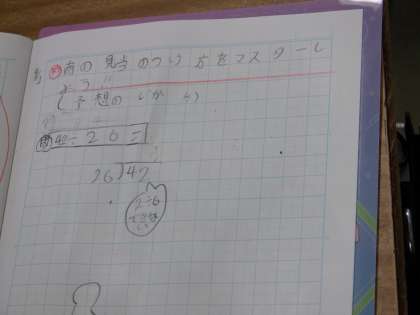 め 商の見当のつけ方をマスターし
よう!!
(予想のしかた)
問 42÷26=
26)42
2÷6
できな
い